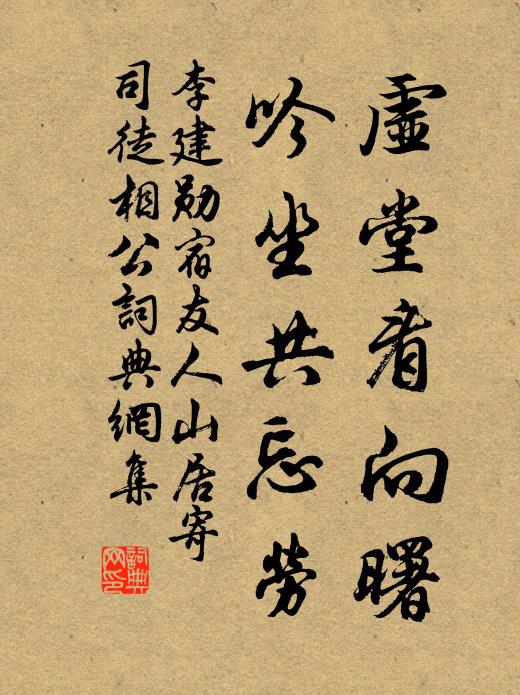 虛堂看向曙
吟坐共忘勞
李建勛宿友人山居寄
司徒相公詞典網集
詞典網印